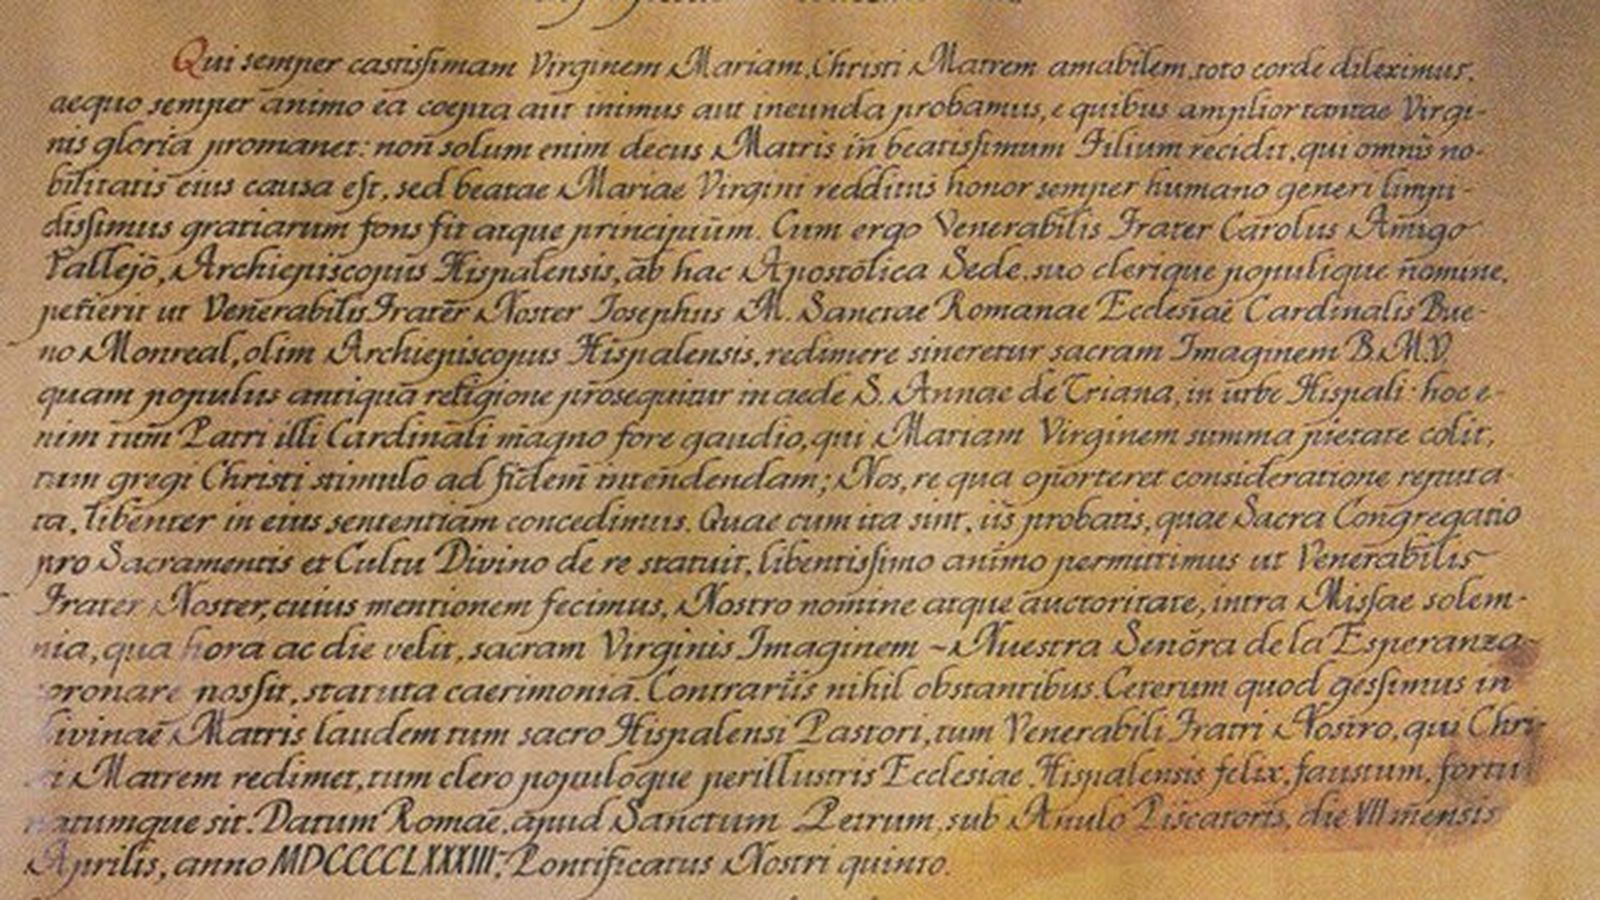 Qui semper castissimam Virginem Mariam, Christi Matrem amabilem, toto corde dileximus,
aequo semper animo ea coepta aut inimus aut ineunda probamus, e quibus amplior tantae Virgi-
nis gloria promanet: non solum enim decus Matris in beatissimum Filium recidit, qui omnis no-
bilitatis eius causa est, sed beatae Mariae Virgini redditus honor semper humano generi limpi-
dissimus gratiarum fons fit atque principium. Cum ergo Venerabilis Frater Carolus Amigo
Vallejo, Archiepiscopus Hispalensis, ab hac Apostolica Sede, suo clerique populique nomine,
petierit ut Venerabilis Frater Noster Josephus M. Sanctae Romanae Ecclesiae Cardinalis Bue-
no Monreal, olim Archiepiscopus Hispalensis, redimere sineretur sacram Imaginem B.M.V.
quam populus antiqua religione prosequitur in aede S. Annae de Triana, in urbe Hispali: hoc e-
nim tum Patri illi Cardinali magno fore gaudio, qui Mariam Virginem summa pietate colit,
tum gregi Christi stimulo ad fidem intendendam; Nos, re qua oporteret consideratione reputa-
ta, libenter in eius sententiam concedimus. Quae cum ita sint, iis probatis, quae Sacra Congregatio
pro Sacramentis et Cultu Divino de re statuit, libentissimo animo permittimus ut Venerabilis
Frater Noster, cuius mentionem fecimus, Nostro nomine atque auctoritate, intra Missae solem-
nia, qua hora ac die velit, sacram Virginis Imaginem ~ Nuestra Senõra de la Esperanza ~
coronare possit, statuta caerimonia. Contrariis nihil obstantibus. Ceterum quod gessimus in
divinae Matris laudem tum sacro Hispalensi Pastori, tum Venerabili Fratri Nostro, qui Chri-
sti Matrem redimet, tum clero populoque perillustris Ecclesiae Hispalensis felix, faustum, fortu
natumque sit. Datum Romae, apud Sanctum Petrum, sub Anulo Piscatoris, die VII mensis
Aprilis, anno MDCCCCLXXXIII, Pontificatus Nostri quinto.